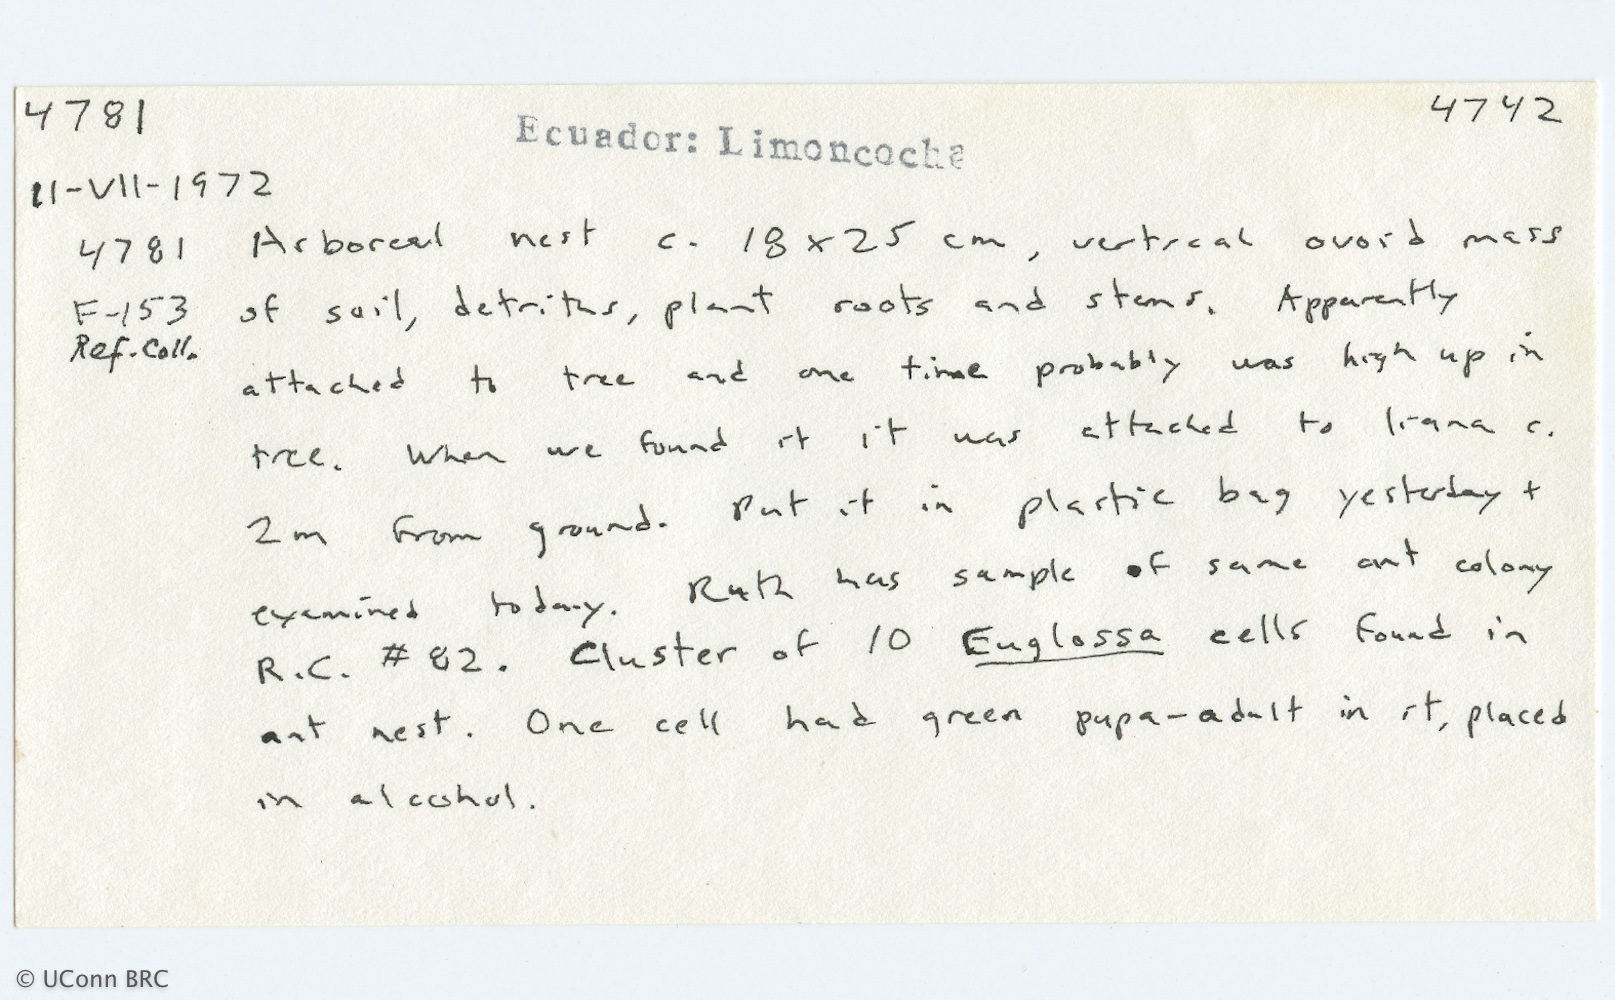 4781 4742
Ecuador: Limoncocha
11-VII-1972
4781 Arboreal nest c. 18x25 cm, vertical ovoid mass
F-153 of soil, detritus, plant roots and stems. Apparently
Ref. Coll.
attached to tree and one time probably was high up in
tree. When we found it it was attached to liana c.
2m from ground. Put it in plastic bag yesterday +
examined today. Ruth has sample of same ant colony
R.C. #82. Cluster of 10 Euglossa cells found in
ant nest. One cell had green pupa-adult in it, placed
in alcohol.
© UConn BRC